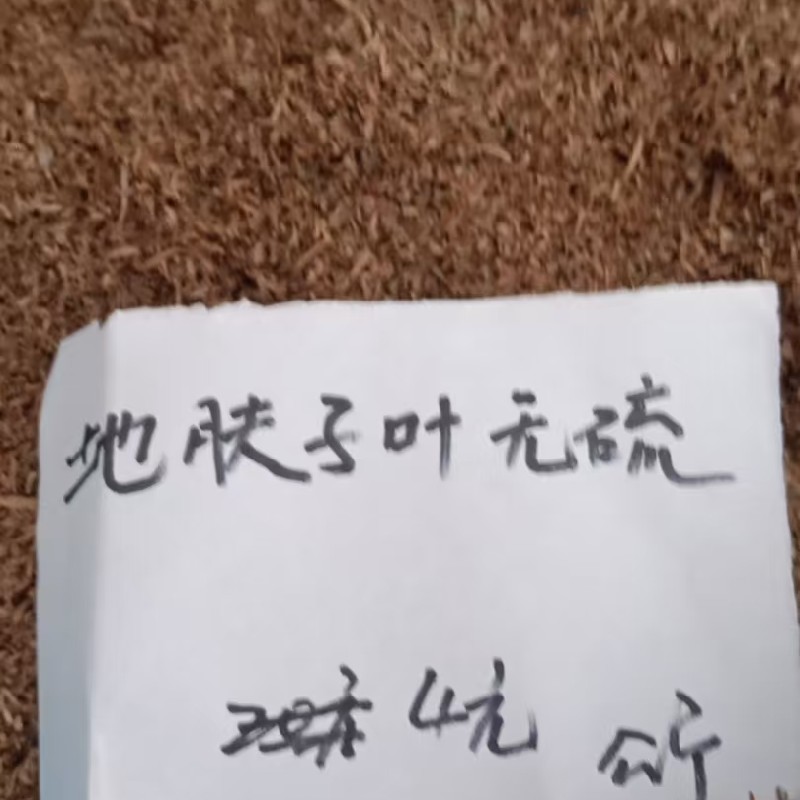 地肤子叶无硫
4元 公斤